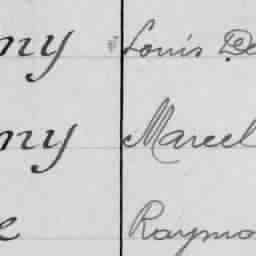 ny Louis De
ny Marcel
e Raymo